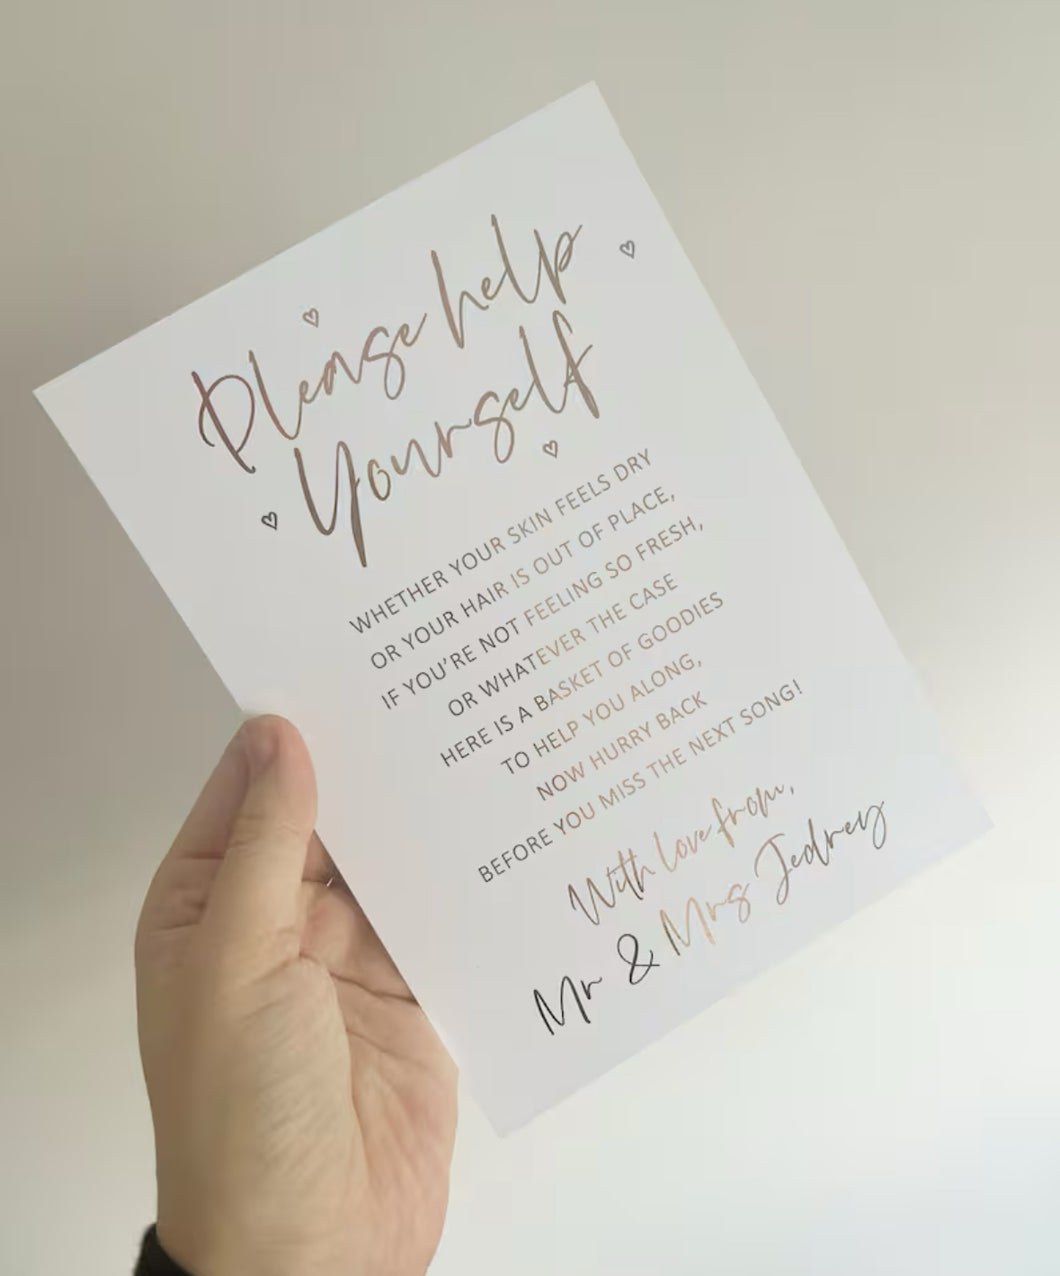 Please help
Yourself
WHETHER YOUR SKIN FEELS DRY
OR YOUR HAIR IS OUT OF PLACE,
IF YOU'RE NOT FEELING SO FRESH,
OR WHATEVER THE CASE
HERE IS A BASKET OF GOODIES
TO HELP YOU ALONG,
NOW HURRY BACK
BEFORE YOU MISS THE NEXT SONG!
With love from,
Mr & Mrs Jedrey